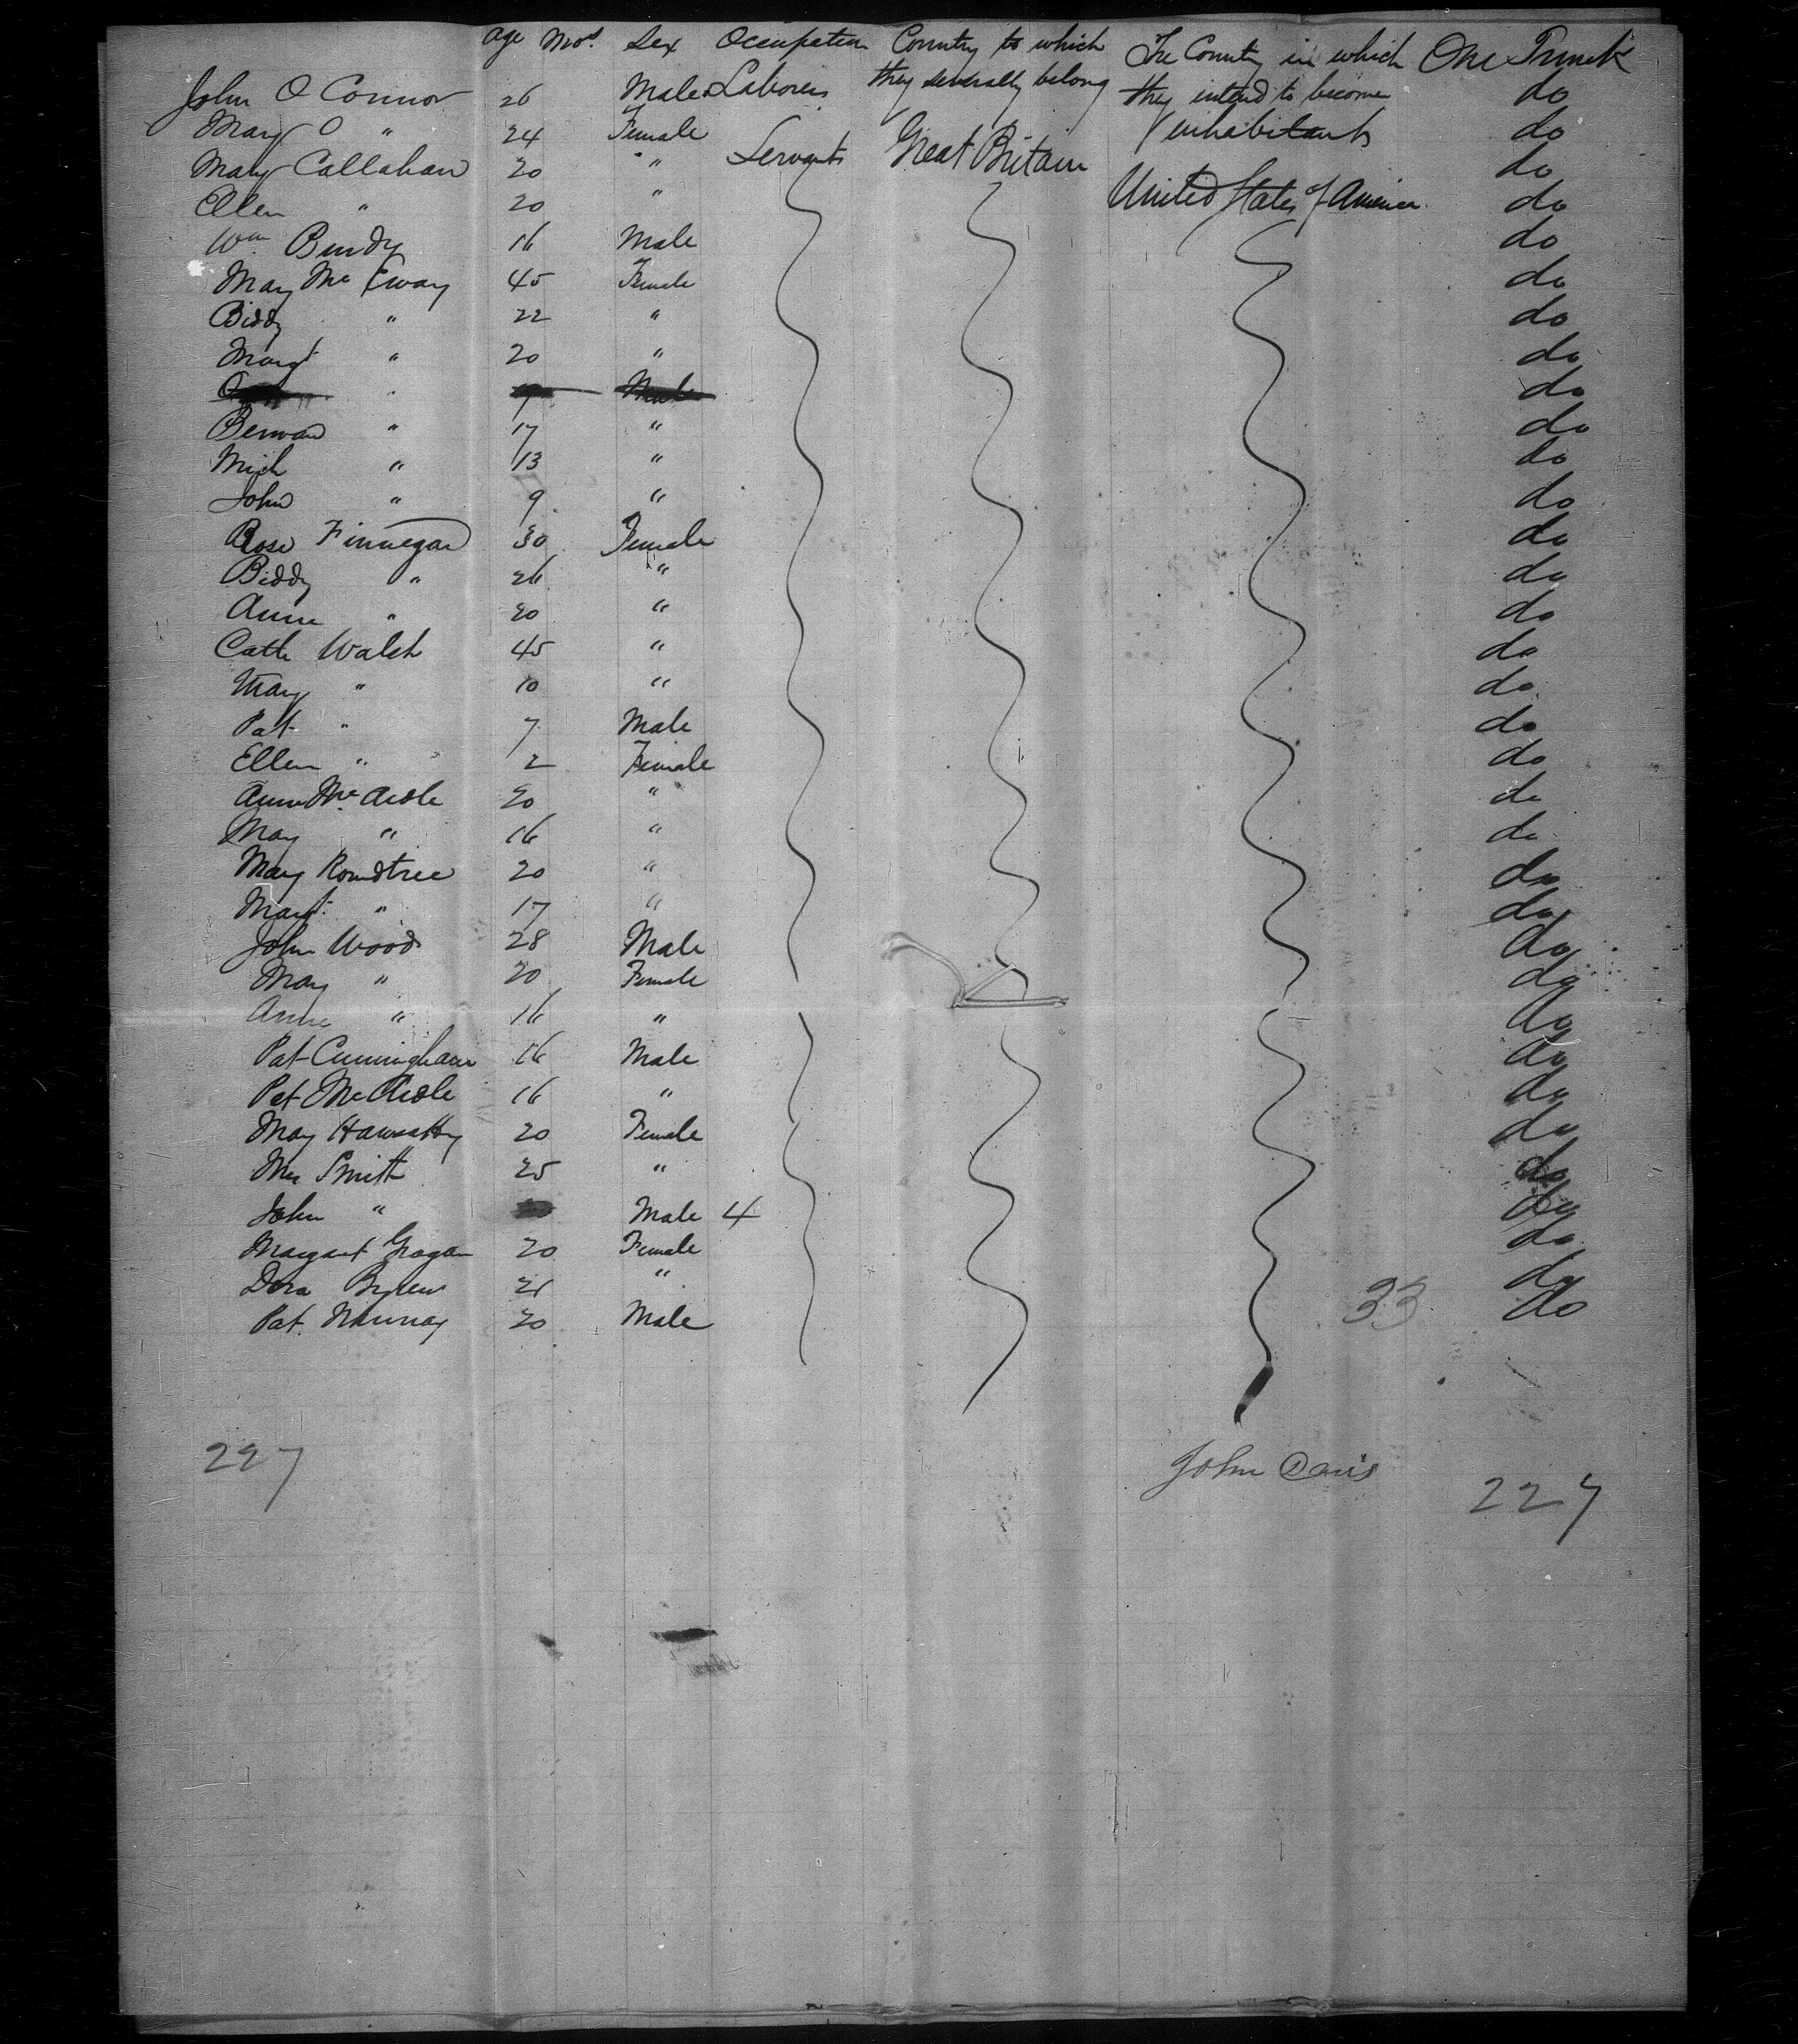 Age Mos. Sex Occupation Country to which The Country in which One Trunk
they severally belong they intend to become
John O Connor 26 Male Laborers do
inhabitants
Mary O " 24 Female do
Servants Great Britain
Mary Callahan 20 " do
United States of America
Ellen " 20 " do
Wm 16 Male do
Mary Mc Evoy 45 Female do
Biddy " 22 " do
Margt " 20 " do
" Male do
Bernard " 17 " do
Mich " 13 " do
John " 9 " do
Rose Finnegan 30 Female do
Biddy " 26 " do
Anne " 20 " do
Cath Walsh 45 " do
Mary " 10 " do
Pat " 7 Male do
Ellen " 2 Female do
Anne Mc Ardle 20 " do
Mary " 16 " do
Mary Roundtree 20 " do
Margt " 17 " do
John Wood 28 Male do
Mary " 20 Female do
Anne " 16 " do
Pat Cunningham 16 Male do
Pat Mc Ardle 16 " do
Mary 20 Female do
Mrs Smith 25 " do
John " Male 4 do
Margaret Grogan 20 Female do
Dora 21 " do
Pat Murray 20 Male 33 do
227 John Davis
227